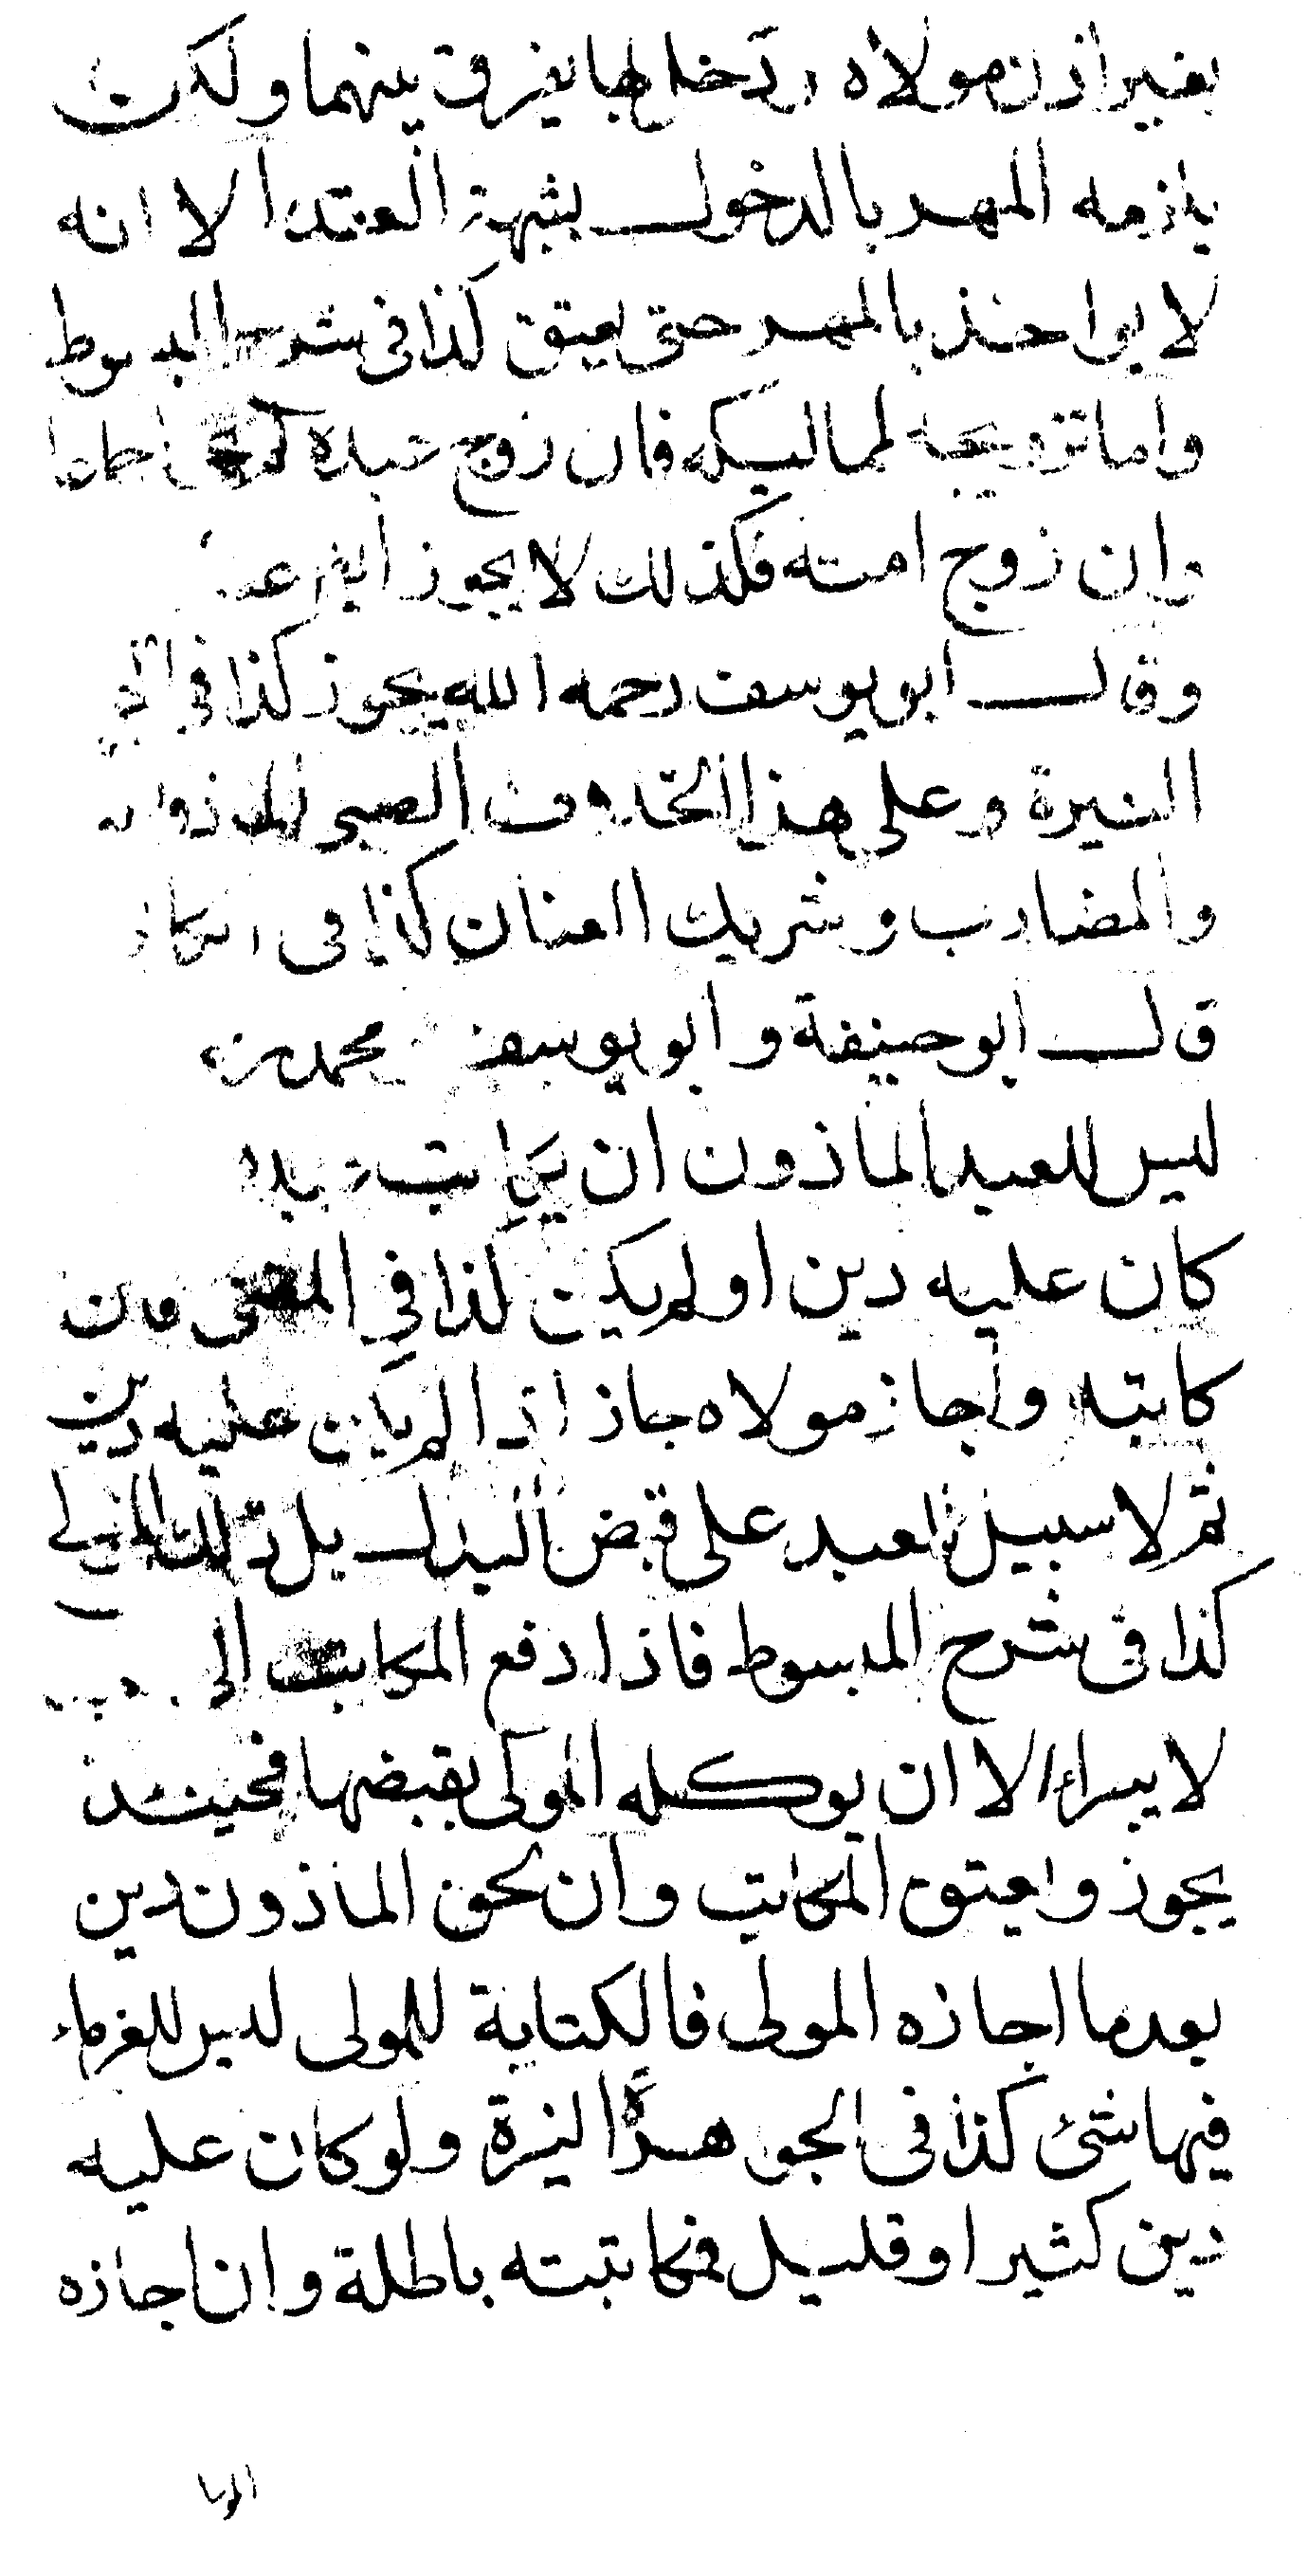 بغير اذن مولاه ودخل بها يفرق بينهما ولكن
يلزمه المهر بالدخول بشبهة العقد الا انه
لا يواخذ بالمهر حتى يعتق كذا في شرح المبسوط
واما تزويجه لمماليكه فان زوج عبده
وان زوج امته فكذلك لا يجوز ايضا
وقال ابو يوسف رحمه الله يجوز كذا في
النيرة وعلى هذا الخلاف الصبي الماذون
والمضارب وشريك العنان كذا في
قال ابو حنيفة وابو يوسف محمد
ليس للعبد الماذون ان يكاتب عبده
كان عليه دين او لم يكن كذا في المغني فان
كاتبه واجاز مولاه جاز اذا لم يكن عليه دين
ثم لا سبيل للعبد على قبض البدل بل ذلك للمولى
كذا في شرح المبسوط فاذا دفع المكاتب الى
لا يبراء الا ان يوكله المولى بقبضها فحينئذ
يجوز واعتق المكاتب وان لحق الماذون دين
بعد ما اجازه المولى فالكتابة للمولى ليس للغرماء
فيها شئ كذا في الجوهرة النيرة ولو كان عليه
دين كثير او قليل فمكاتبته باطلة وان اجازه